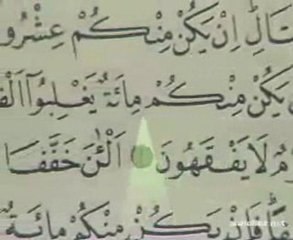 تَالِ اِنْ يَكُنْ مِنْكُمْ عِشْرُو
يَكُنْ مِنْكُمْ مِائَةٌ يَغْلِبُوٓا اَلْفً
مٌ لَا يَفْقَهُونَ اَلْـٰٔنَ خَفَّفَ ا
يَكُنْ مِنْكُمْ مِائَةٌ